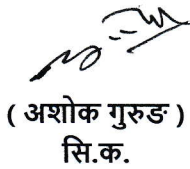 ( अशोक गुरुङ )
सि.क.